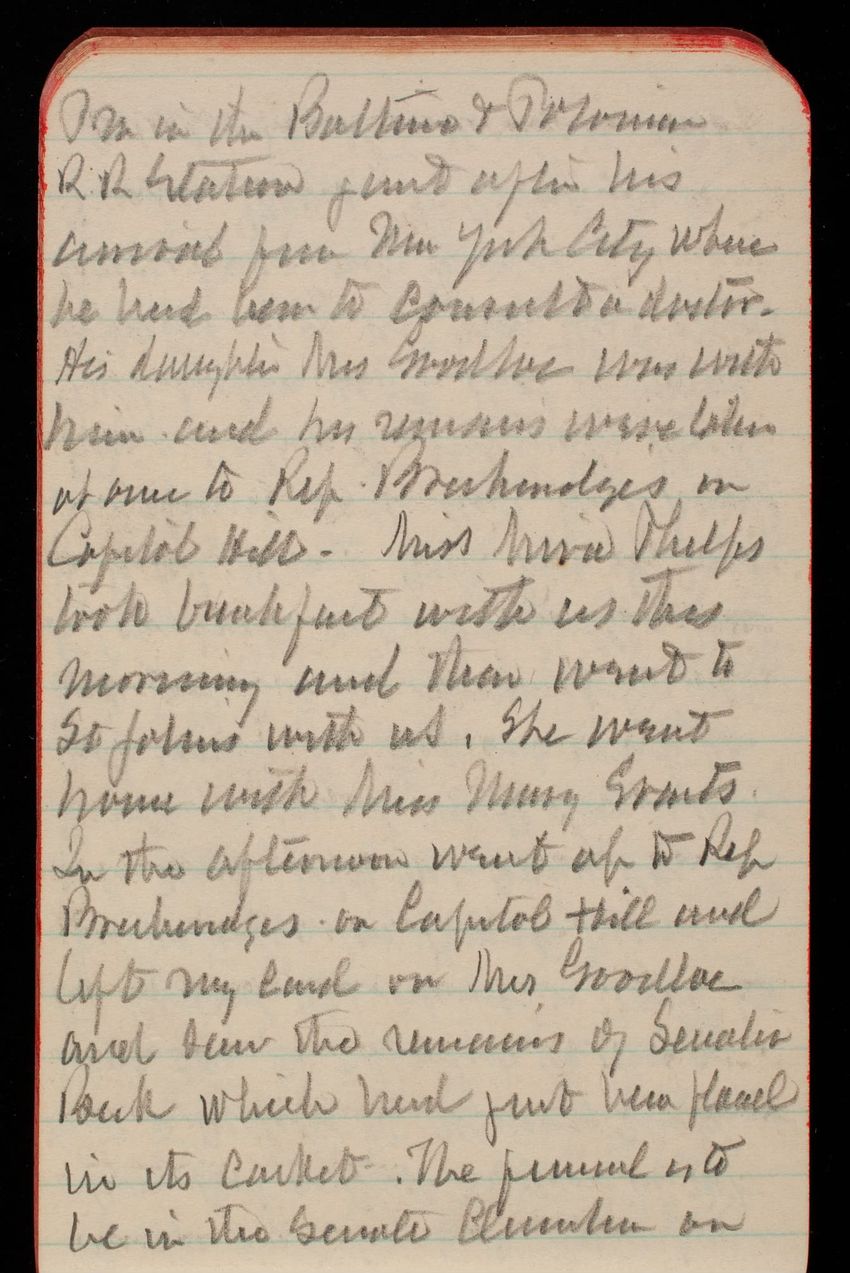 P M in the Baltimo & Potomac
R R Station just after his
arrival from New York City where
he had been to consult a doctor.
His daughter Mrs Goodloe was with
him and his remains were taken
at once to Rep. Breckenridges on
Capitol Hill - Miss Mina Phelps
took breakfast with us this
morning and then went to
St Johns with us. She went
home with Miss Mary Evarts.
In the afternoon went up to Rep
Breckenridges on Capitol Hill and
left my card on Mrs Goodloe
and saw the remains of Senator
Beck which had just been placed
in its casket. The funeral is to
be in the Senate Chamber on